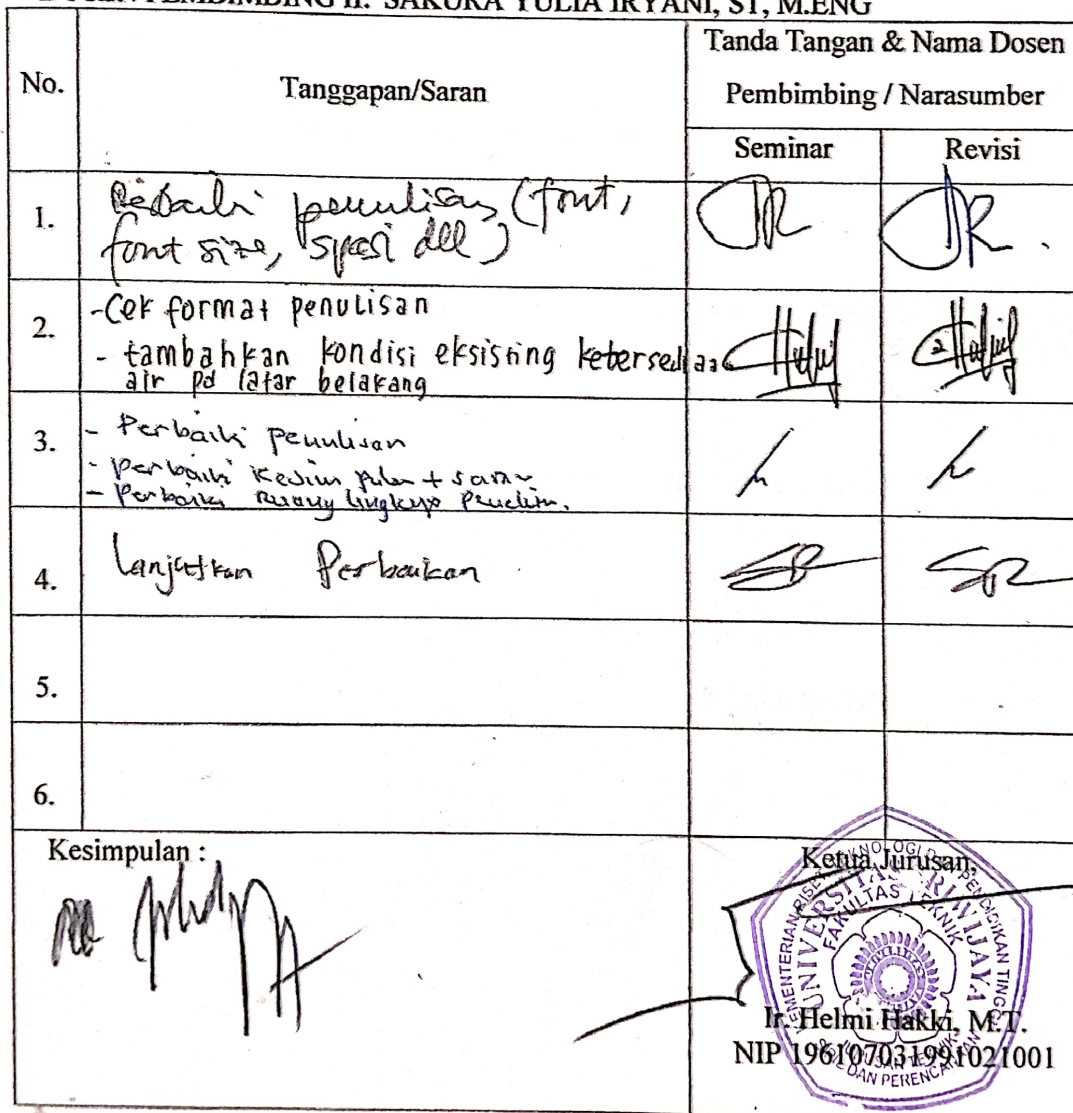 DOSEN PEMBIMBING II: SAKURA YULIA IRYANI, ST, M.ENG
No.
Tanggapan/Saran
Tanda Tangan & Nama Dosen
Pembimbing / Narasumber
Seminar
Revisi
1.
Perbaiki penulisan (font,
font size, spasi dll)
2.
-Cek format penulisan
- tambahkan kondisi eksisting ketersediaan
air pd latar belakang
3.
- Perbaiki penulisan
- perbaiki kesimpulan + saran
- Perbaiki ruang lingkup
4.
Lanjutkan Perbaikan
5.
6.
Kesimpulan :
Ketua Jurusan,
UNIVERSITAS SRIWIJAYA
FAKULTAS TEKNIK
Ir. Helmi Hakki, M.T.
NIP 196107031991021001